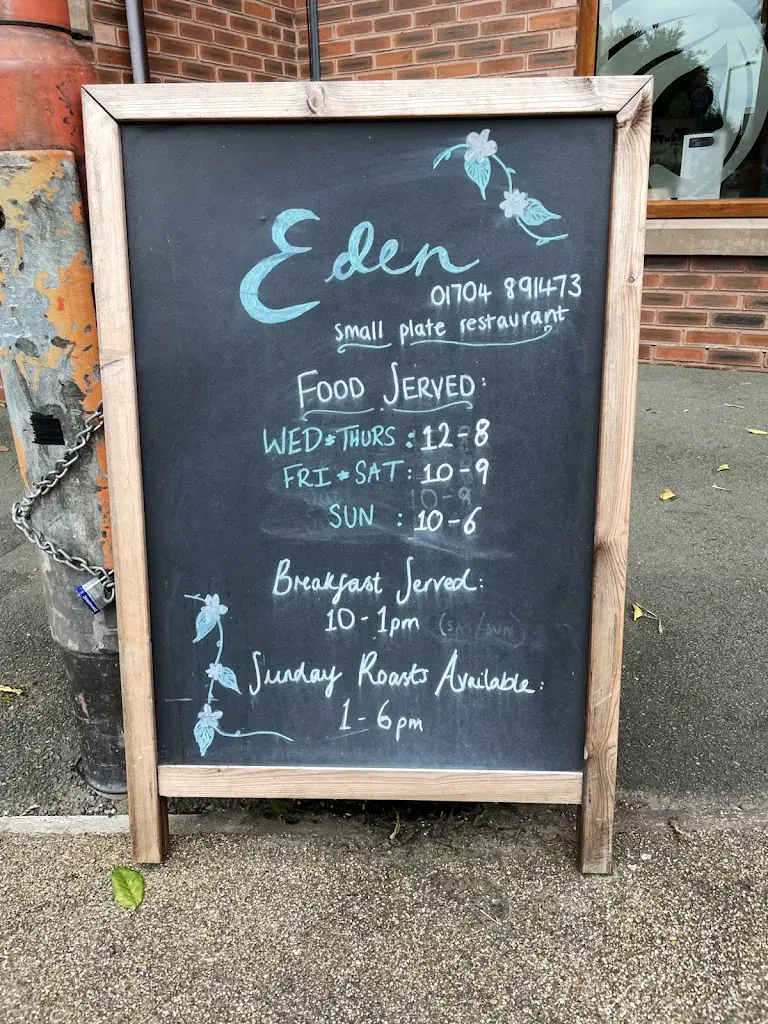 Eden
01704 891473
small plate restaurant
FOOD SERVED:
WED*THURS : 12-8
FRI*SAT : 10-9
10-9
SUN : 10-6
Breakfast Served:
10-1pm (SAT/SUN)
Sunday Roasts Available:
1-6pm